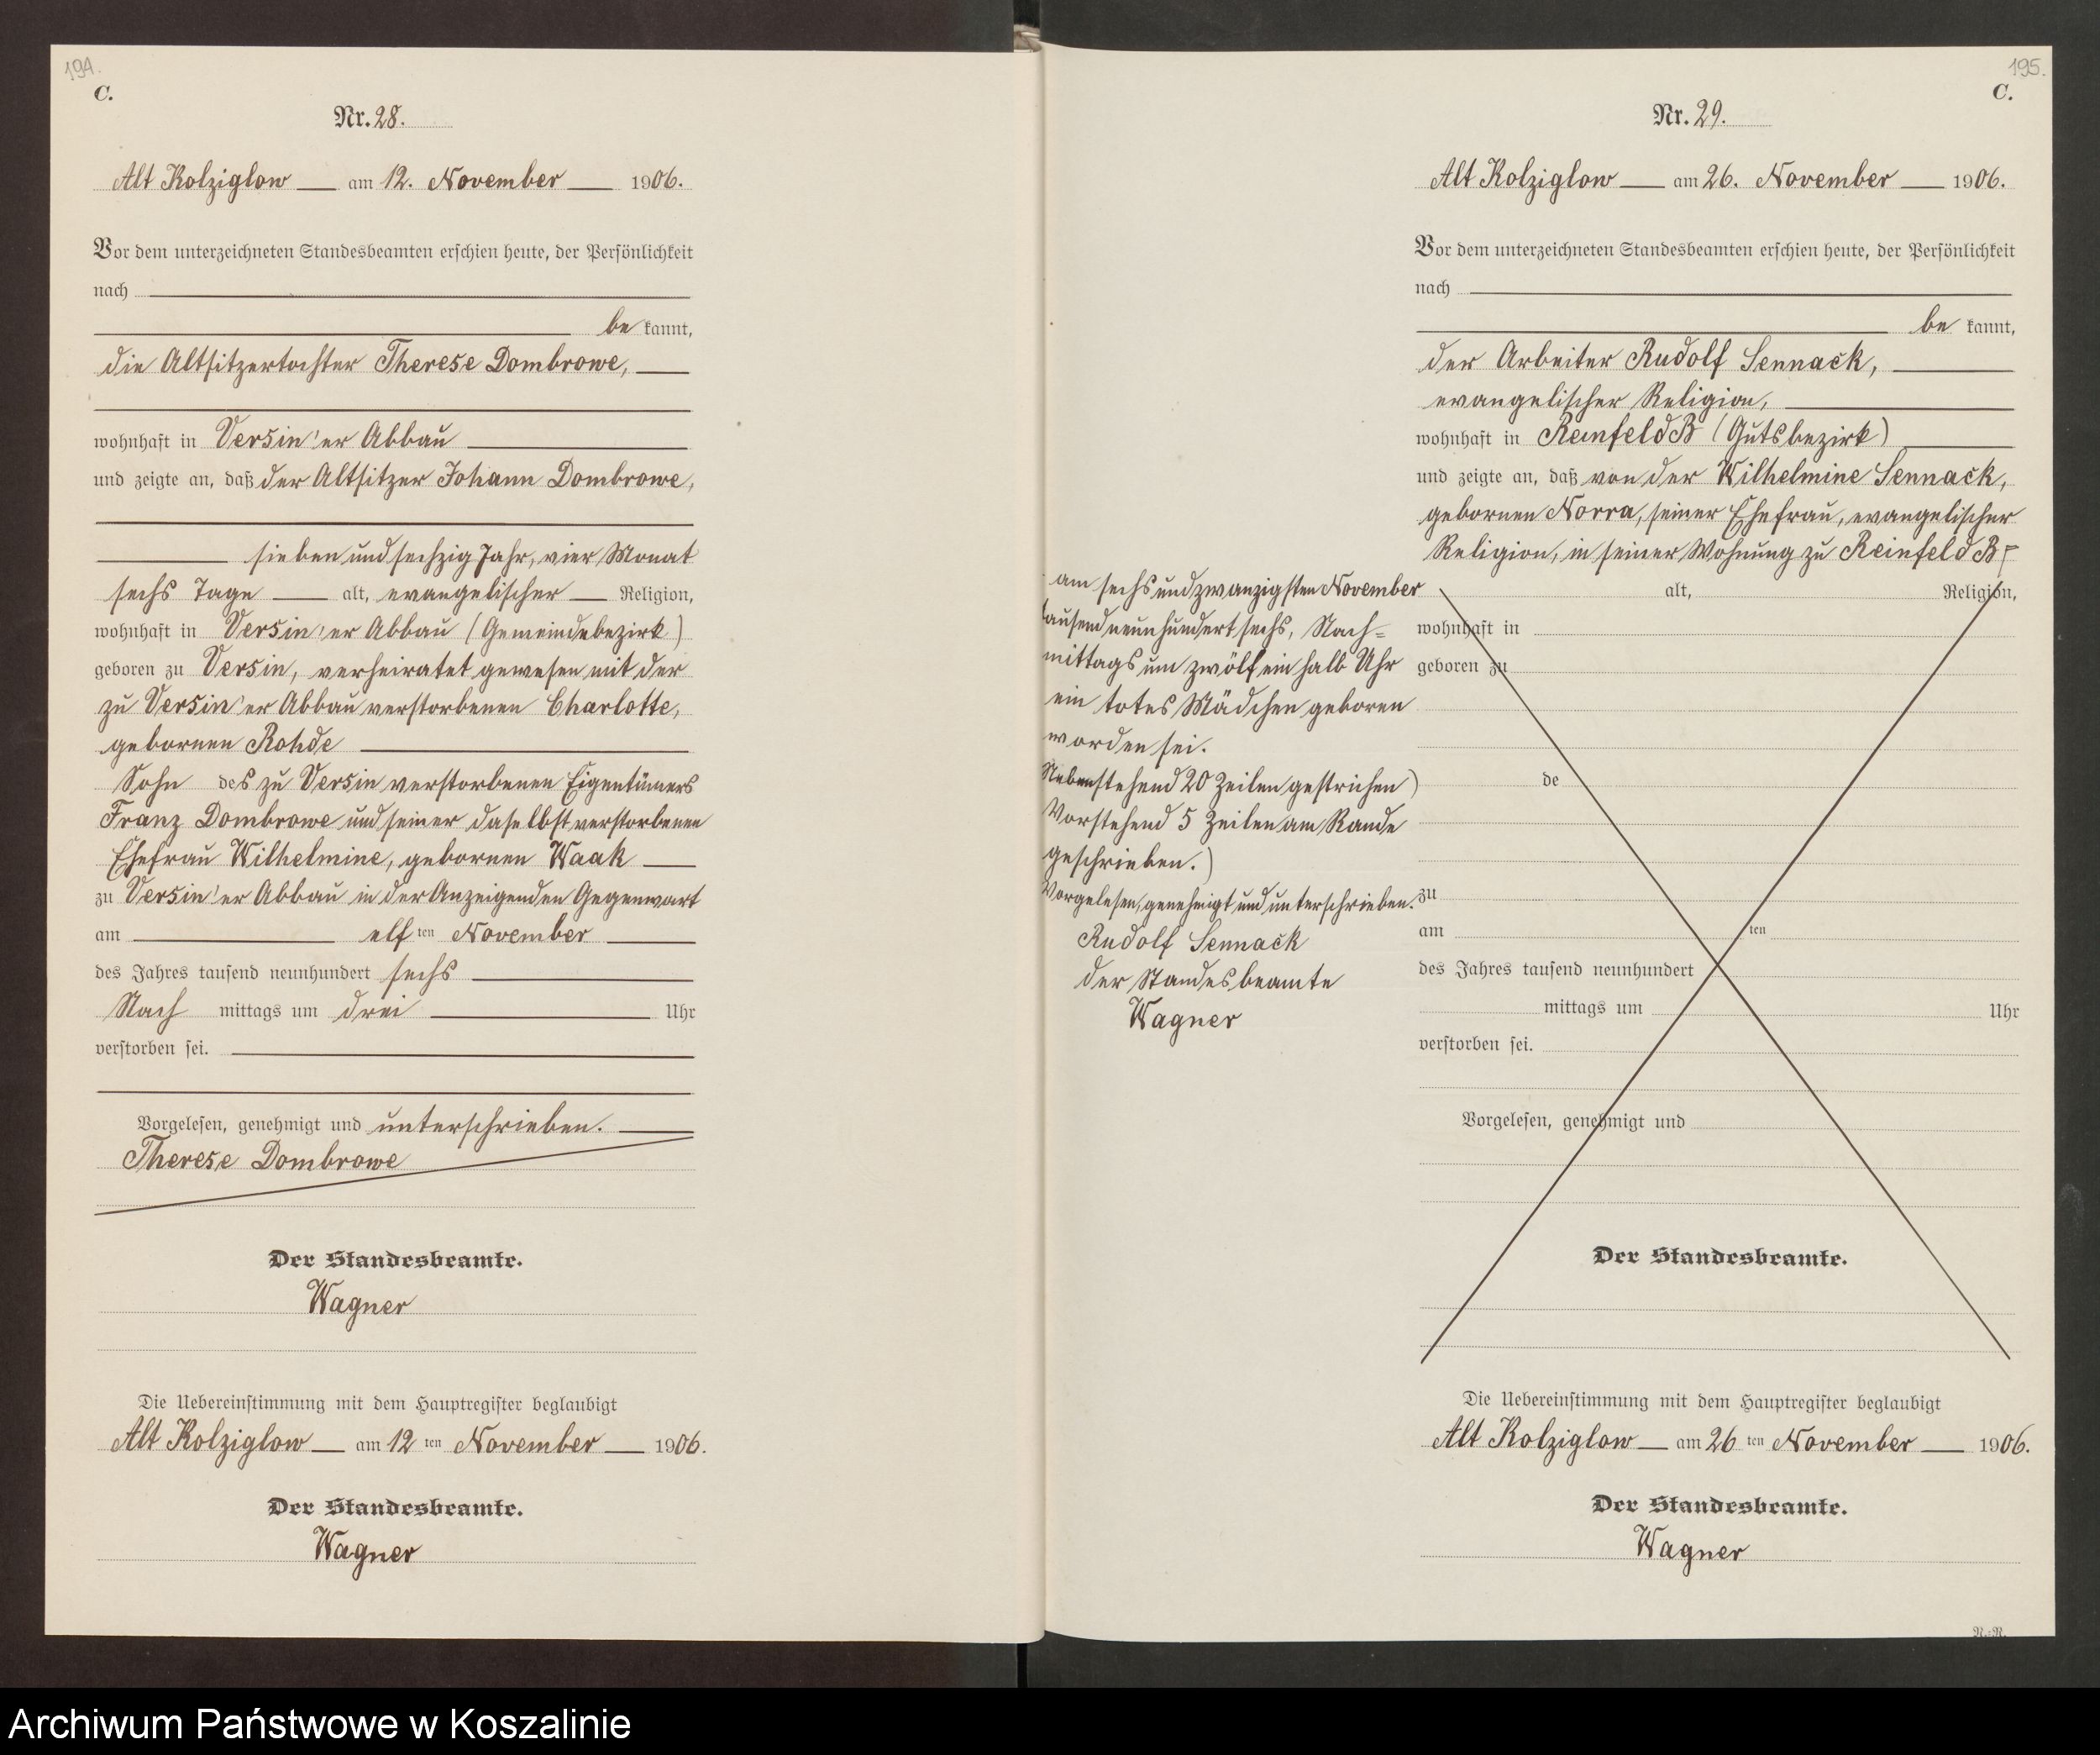 194.
C.
Nr. 28.
Alt Kolziglow am 12. November 1906.
Vor dem unterzeichneten Standesbeamten erschien heute, der Persönlichkeit
nach
be kannt,
die Altsitzertochter Therese Dombrowe,
wohnhaft in Versin'er Abbau
und zeigte an, daß der Altsitzer Johann Dombrowe,
sieben und sechzig Jahr, vier Monat
sechs Tage alt, evangelischer Religion,
wohnhaft in Versin'er Abbau (Gemeindebezirk)
geboren zu Versin, verheiratet gewesen mit der
zu Versin'er Abbau verstorbenen Charlotte,
gebornen Rohde
Sohn des zu Versin verstorbenen Eigentümers
Franz Dombrowe und seiner daselbst verstorbenen
Ehefrau Wilhelmine, gebornen Waak
zu Versin'er Abbau in der Anzeigenden Gegenwart
am elf ten November
des Jahres tausend neunhundert sechs
Nach mittags um drei Uhr
verstorben sei.
Vorgelesen, genehmigt und unterschrieben.
Therese Dombrowe
Der Standesbeamte.
Wagner
Die Uebereinstimmung mit dem Hauptregister beglaubigt
Alt Kolziglow am 12 ten November 1906.
Der Standesbeamte.
Wagner
195.
C.
Nr. 29.
Alt Kolziglow am 26. November 1906.
Vor dem unterzeichneten Standesbeamten erschien heute, der Persönlichkeit
nach
be kannt,
der Arbeiter Rudolf Sennack,
evangelischer Religion,
wohnhaft in Reinfeld B (Gutsbezirk)
und zeigte an, daß von der Wilhelmine Sennack,
gebornen Norra, seiner Ehefrau, evangelischer
Religion, in seiner Wohnung zu Reinfeld B
am sechs und zwanzigsten November
tausend neunhundert sechs, Nach=
mittags um zwölf ein halb Uhr
ein totes Mädchen geboren
worden sei.
Nebenstehend 20 Zeilen gestrichen)
Vorstehend 5 Zeilen am Rande
geschrieben.)
Vorgelesen, genehmigt und unterschrieben.
Rudolf Sennack
der Standesbeamte
Wagner
alt, Religion,
wohnhaft in
geboren zu
de
zu
am ten
des Jahres tausend neunhundert
mittags um Uhr
verstorben sei.
Vorgelesen, genehmigt und
Der Standesbeamte.
Die Uebereinstimmung mit dem Hauptregister beglaubigt
Alt Kolziglow am 26 ten November 1906.
Der Standesbeamte.
Wagner
N.=R.
Archiwum Państwowe w Koszalinie